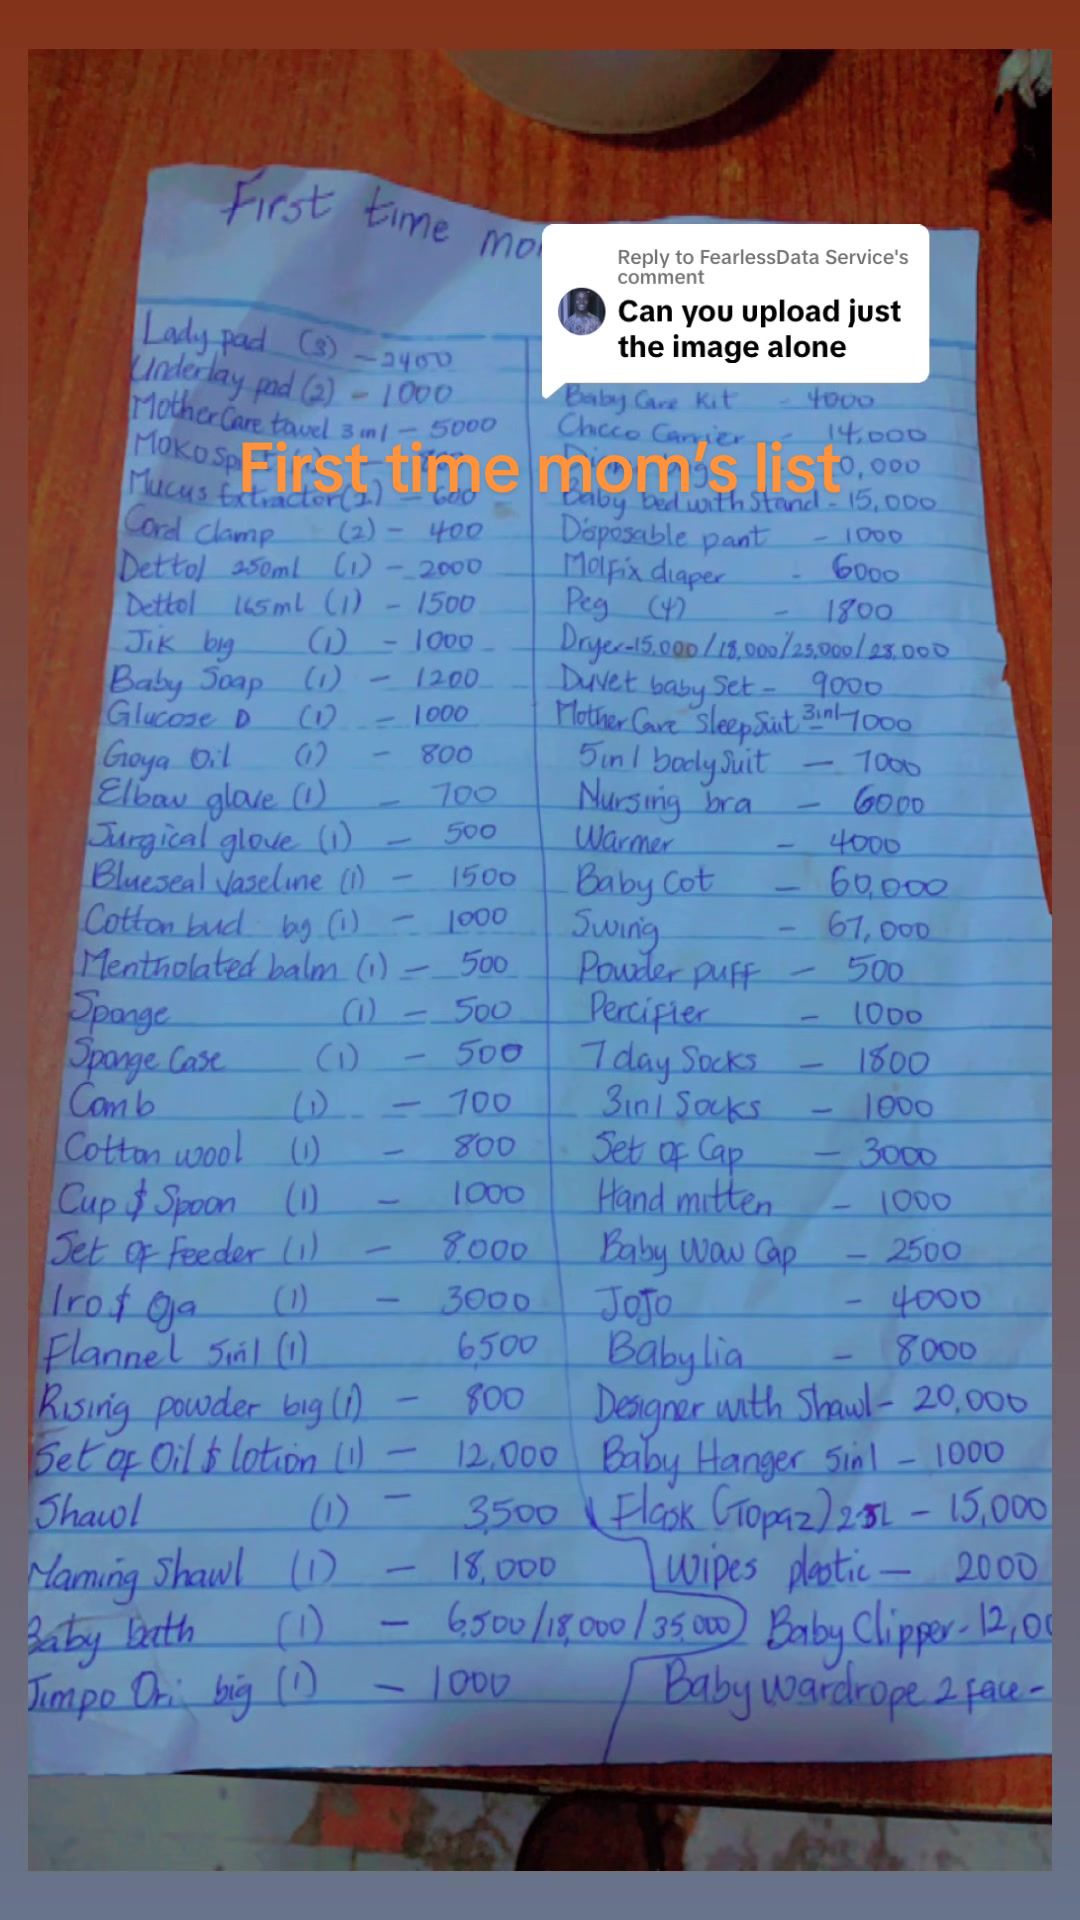 First time
Reply to FearlessData Service's
comment
Can you upload just
the image alone
First time mom's list
Lady pad (3) - 2400
Underlay pad (2) - 1000
MotherCare towel 3in1 - 5000
Moko
Mucus Extractor (2) - 600
Cord clamp (2) - 400
Dettol 250ml (1) - 2000
Dettol 165ml (1) - 1500
Jik big (1) - 1000
Baby Soap (1) - 1200
Glucose D (1) - 1000
Goya Oil (1) - 800
Elbow glove (1) - 700
Surgical glove (1) - 500
Blueseal Vaseline (1) - 1500
Cotton bud big (1) - 1000
Mentholated balm (1) - 500
Sponge (1) - 500
Sponge Case (1) - 500
Comb (1) - 700
Cotton wool (1) - 800
Cup & Spoon (1) - 1000
Set of feeder (1) - 8000
Iro & Oja (1) - 3000
Flannel 5in1 (1) 6,500
Rising powder big (1) - 800
Set of Oil & lotion (1) - 12,000
Shawl (1) - 3,500
Naming Shawl (1) - 18,000
Baby bath (1) - 6,500/18,000/35,000
Jimpo Ori big (1) - 1000
Baby Care Kit - 4000
Chicco Carrier - 14,000
0,000
Baby bed with Stand - 15,000
Disposable pant - 1000
Molfix diaper - 6000
Peg (4) - 1800
Dryer - 15,000/18,000/25,000/28,000
Duvet baby Set - 9000
MotherCare SleepSuit 3in1 - 7000
5in1 bodySuit - 7000
Nursing bra - 6000
Warmer - 4000
Baby Cot - 60,000
Swing - 67,000
Powder puff - 500
Percifier - 1000
7 day Socks - 1800
3in1 Socks - 1000
Set of Cap - 3000
Hand mitten - 1000
Baby Wow Cap - 2500
JoJo - 4000
Babylia - 8000
Designer with Shawl - 20,000
Baby Hanger 5in1 - 1000
Flask (Topaz) - 15,000
Wipes plastic - 2000
Baby Clipper - 12,00
Baby Wardrope 2 face -